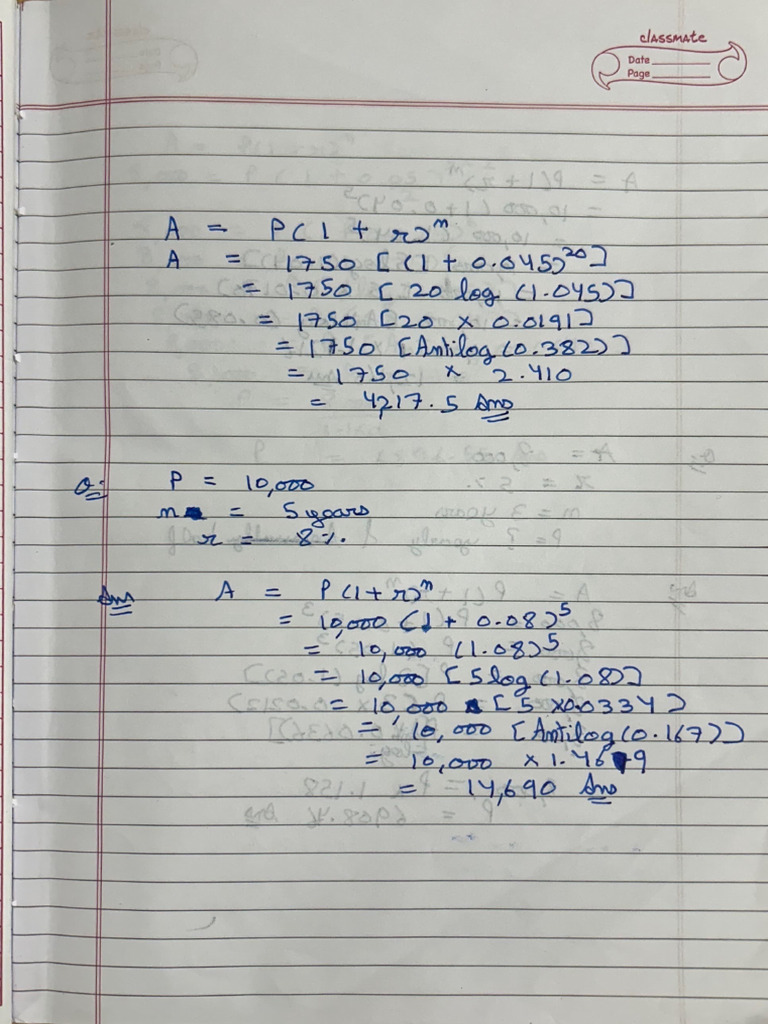 classmate
Date
Page
A = P(1 + r)^n
A = 1750 [(1 + 0.045)^20]
= 1750 [20 log (1.045)]
= 1750 [20 × 0.0191]
= 1750 [Antilog (0.382)]
= 1750 × 2.410
= 4217.5 Ans
Q: P = 10,000
n = 5 years
r = 8%.
Ans A = P(1+r)^n
= 10,000 (1 + 0.08)^5
= 10,000 (1.08)^5
= 10,000 [5 log (1.08)]
= 10,000 [5 × 0.0334]
= 10,000 [Antilog (0.167)]
= 10,000 × 1.469
= 14,690 Ans